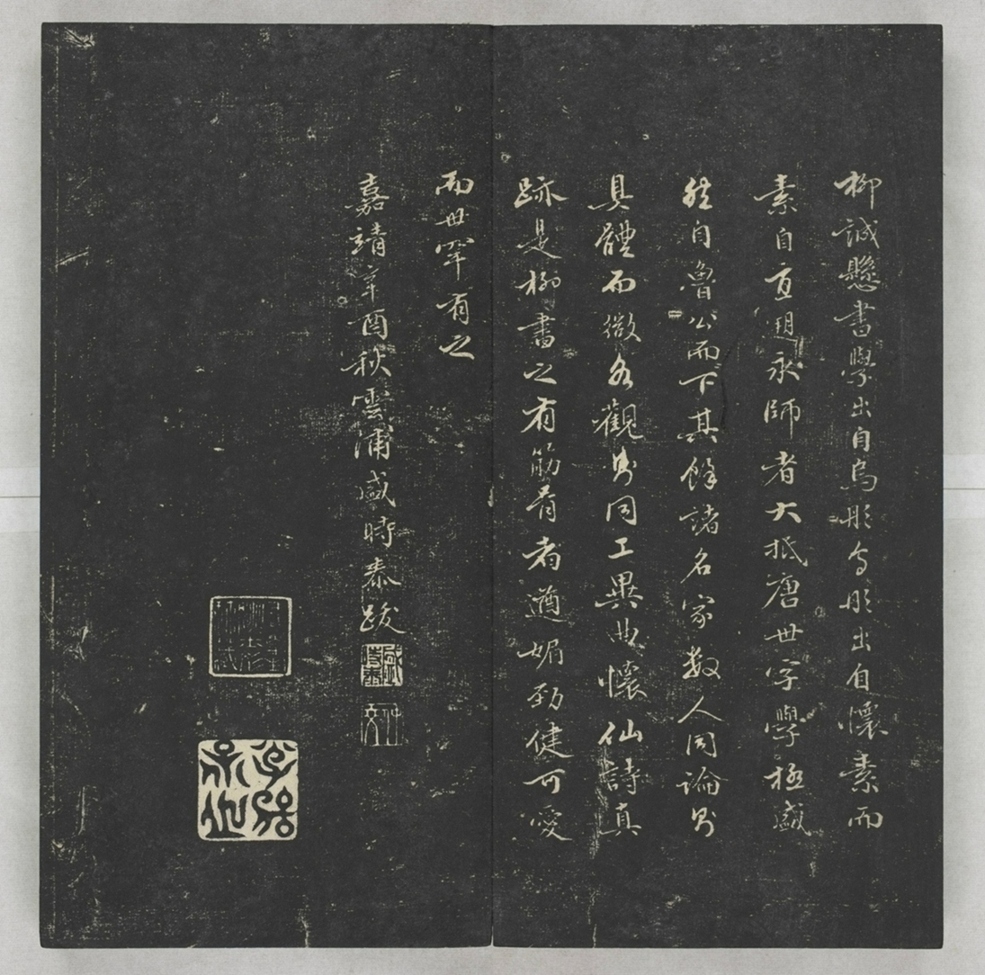 柳誠懸書學出自烏彤烏彤出自懷素而
素自直追永師者大抵唐世字學極盛
然自魯公而下其餘諸名家數人同論則
具體而微各觀則同工異曲懷仙詩真
跡是柳書之有筋骨者遒媚勁健可愛
而世罕有之
嘉靖辛酉秋雲浦盛時泰跋
盛時泰